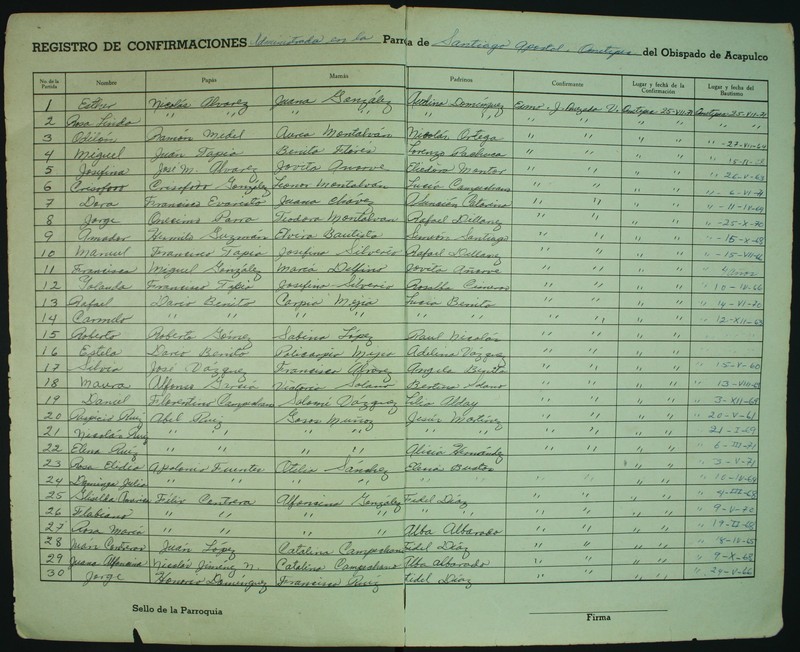 REGISTRO DE CONFIRMACIONES en la Parroa de Santiago Apostol. Ometepec del Obispado de Acapulco
No. de la Partida Nombre Papás Mamás Padrinos Confirmante Lugar y fecha de la Confirmación Lugar y fecha del Bautismo
1 Esther Nicolás Alvarez Juana González Audina Domínguez Ometepec 25-VII-71 Ometepec 25-VII-71
2 Rosa Linda " " " " " " " " " "
3 Odilón Ramón Medel Aurea Montalván Nicolás Ortega " " " " " -27-VI-64
4 Miguel Juan Tapia Benita Flores Lorenzo Pacheco " " " "
5 Josefina José M. Alvarez Jovita Añorve Eliodora Montor " " " " " 26-V-63
6 Crisoforo Crisoforo González Leonor Montalván Lucía Campechano " " " " " - 6-VI-71
7 Dora Francisco Evaristo Juana Chávez Catarino " " " " " - 11-IV-69
8 Jorge Onesimo Parra Teodora Montalvan Rafael Dillanez " " " " " -25-X-70
9 Amador Guzmán Elvira Bautista Simeón Santiago " " " " " -15-X-68
10 Manuel Francisco Tapia Josefina Silverio Rafael Dillanez " " " " " -15-VII-66
11 Francisca Miguel González María Delfino Jovita Añorve " " " " " 4 años
12 Yolanda Francisco Tapia Josefina Silverio Rosalba Cisneros " " " " " 10-IV-66
13 Rafael Dario Benito Carpia Mejia Lucia Benito " " " " " 14-VI-70
14 Carmelo " " " " " " " " " 12-XII-63
15 Roberto Roberto Gómez Sabina López Raul Nicolás " " " "
16 Estela Dario Benito Policarpia Mejia Adelina Vázquez " " " "
17 Silvia José Vázquez Francisca Alvarez Angela Benita " " " " " 15-V-60
18 Maura Alfonso García Victoria Solano Bertina Solano " " " " " 13-VIII-63
19 Daniel Florentino Campechano Salomé Vázquez Lilia Alday " " " " " 3-XII-68
20 Ruiz Abel Ruiz Muñoz Jesús Martínez " " " " " 20-V-61
21 Nicolás Ruiz " " " " " " " " 21-I-69
22 Elena Ruiz " " " " Alicia Hernández " " " " " 6-III-71
23 Rosa Elidia Apolonio Fuentes Otilia Sánchez Elena Bustos " " " " " 3-V-71
24 Dominga Julia " " " " " " " " " 10-IV-64
25 Felix Contoera Alfonsina González Fidel Díaz " " " " " 4-III-68
26 Flabiano " " " " " " " " " " 9-V-70
27 Rosa María " " " " Alba Albarado " " " " " 19-II-68
28 Juan Contreras Juán López Catalina Campechano Fidel Díaz " " " " " 18-IV-65
29 Juana Nicolás Jiménez N. Catalina Campechano Alba Albarado " " " " " 9-X-68
30 Jorge Honorio Domínguez Francisca Ruiz Fidel Díaz " " " " " 24-V-66
Sello de la Parroquia
Firma